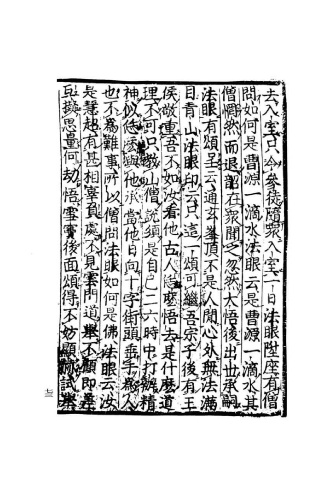 去入室只令參徒隨衆入室一日法眼陞座有僧
問如何是曹源一滴水法眼云是曹源一滴水其
僧惘然而退韶在衆聞之忽然大悟後出世承嗣
法眼有頌呈云通玄峯頂不是人間心外無法滿
目青山法眼印云只這一頌可繼吾宗子後有王
侯敬重吾不如汝看他古人恁麼悟去是什麼道
理不可只教山僧說須是自己二六時中打辦精
神似恁麼與他承當他日向十字街頭垂手爲人
也不爲難事所以僧問法眼如何是佛法眼云汝
是慧超有甚相辜負處不見雲門道舉不顧即差
互擬思量何劫悟雪竇後面頌得不妨顯赫試舉